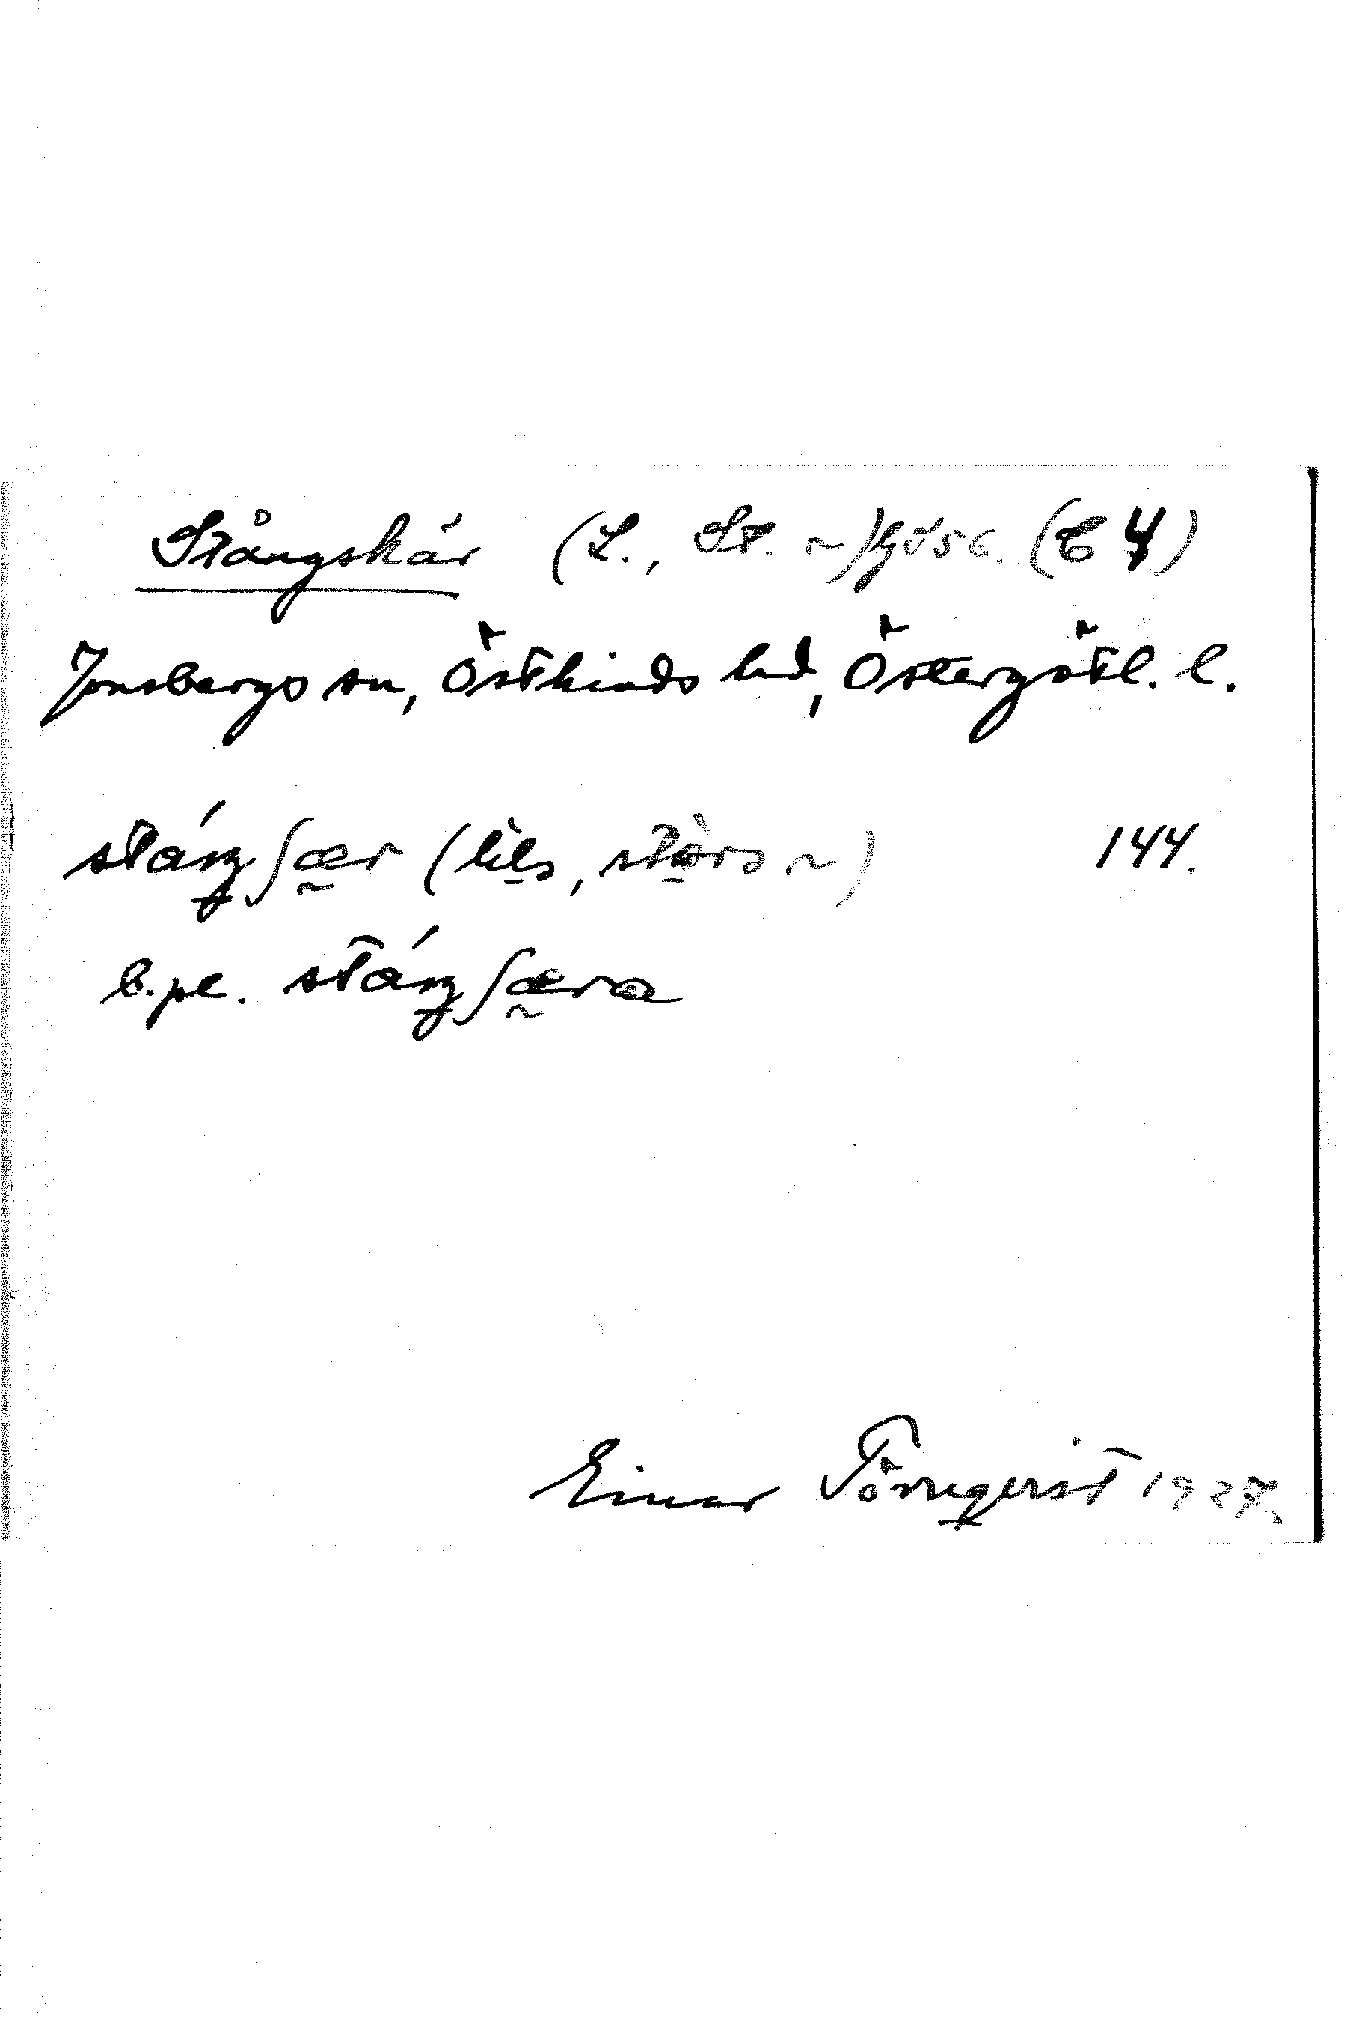 Stångskär (L., St. ~) (C 4)
Jonsbergs sn, Östkinds hd, Östergötl. l.
stáŋʃær (lìls, stòrs ~) 144.
b.pl. stáŋʃæra
Einar Törnqvist 1927.